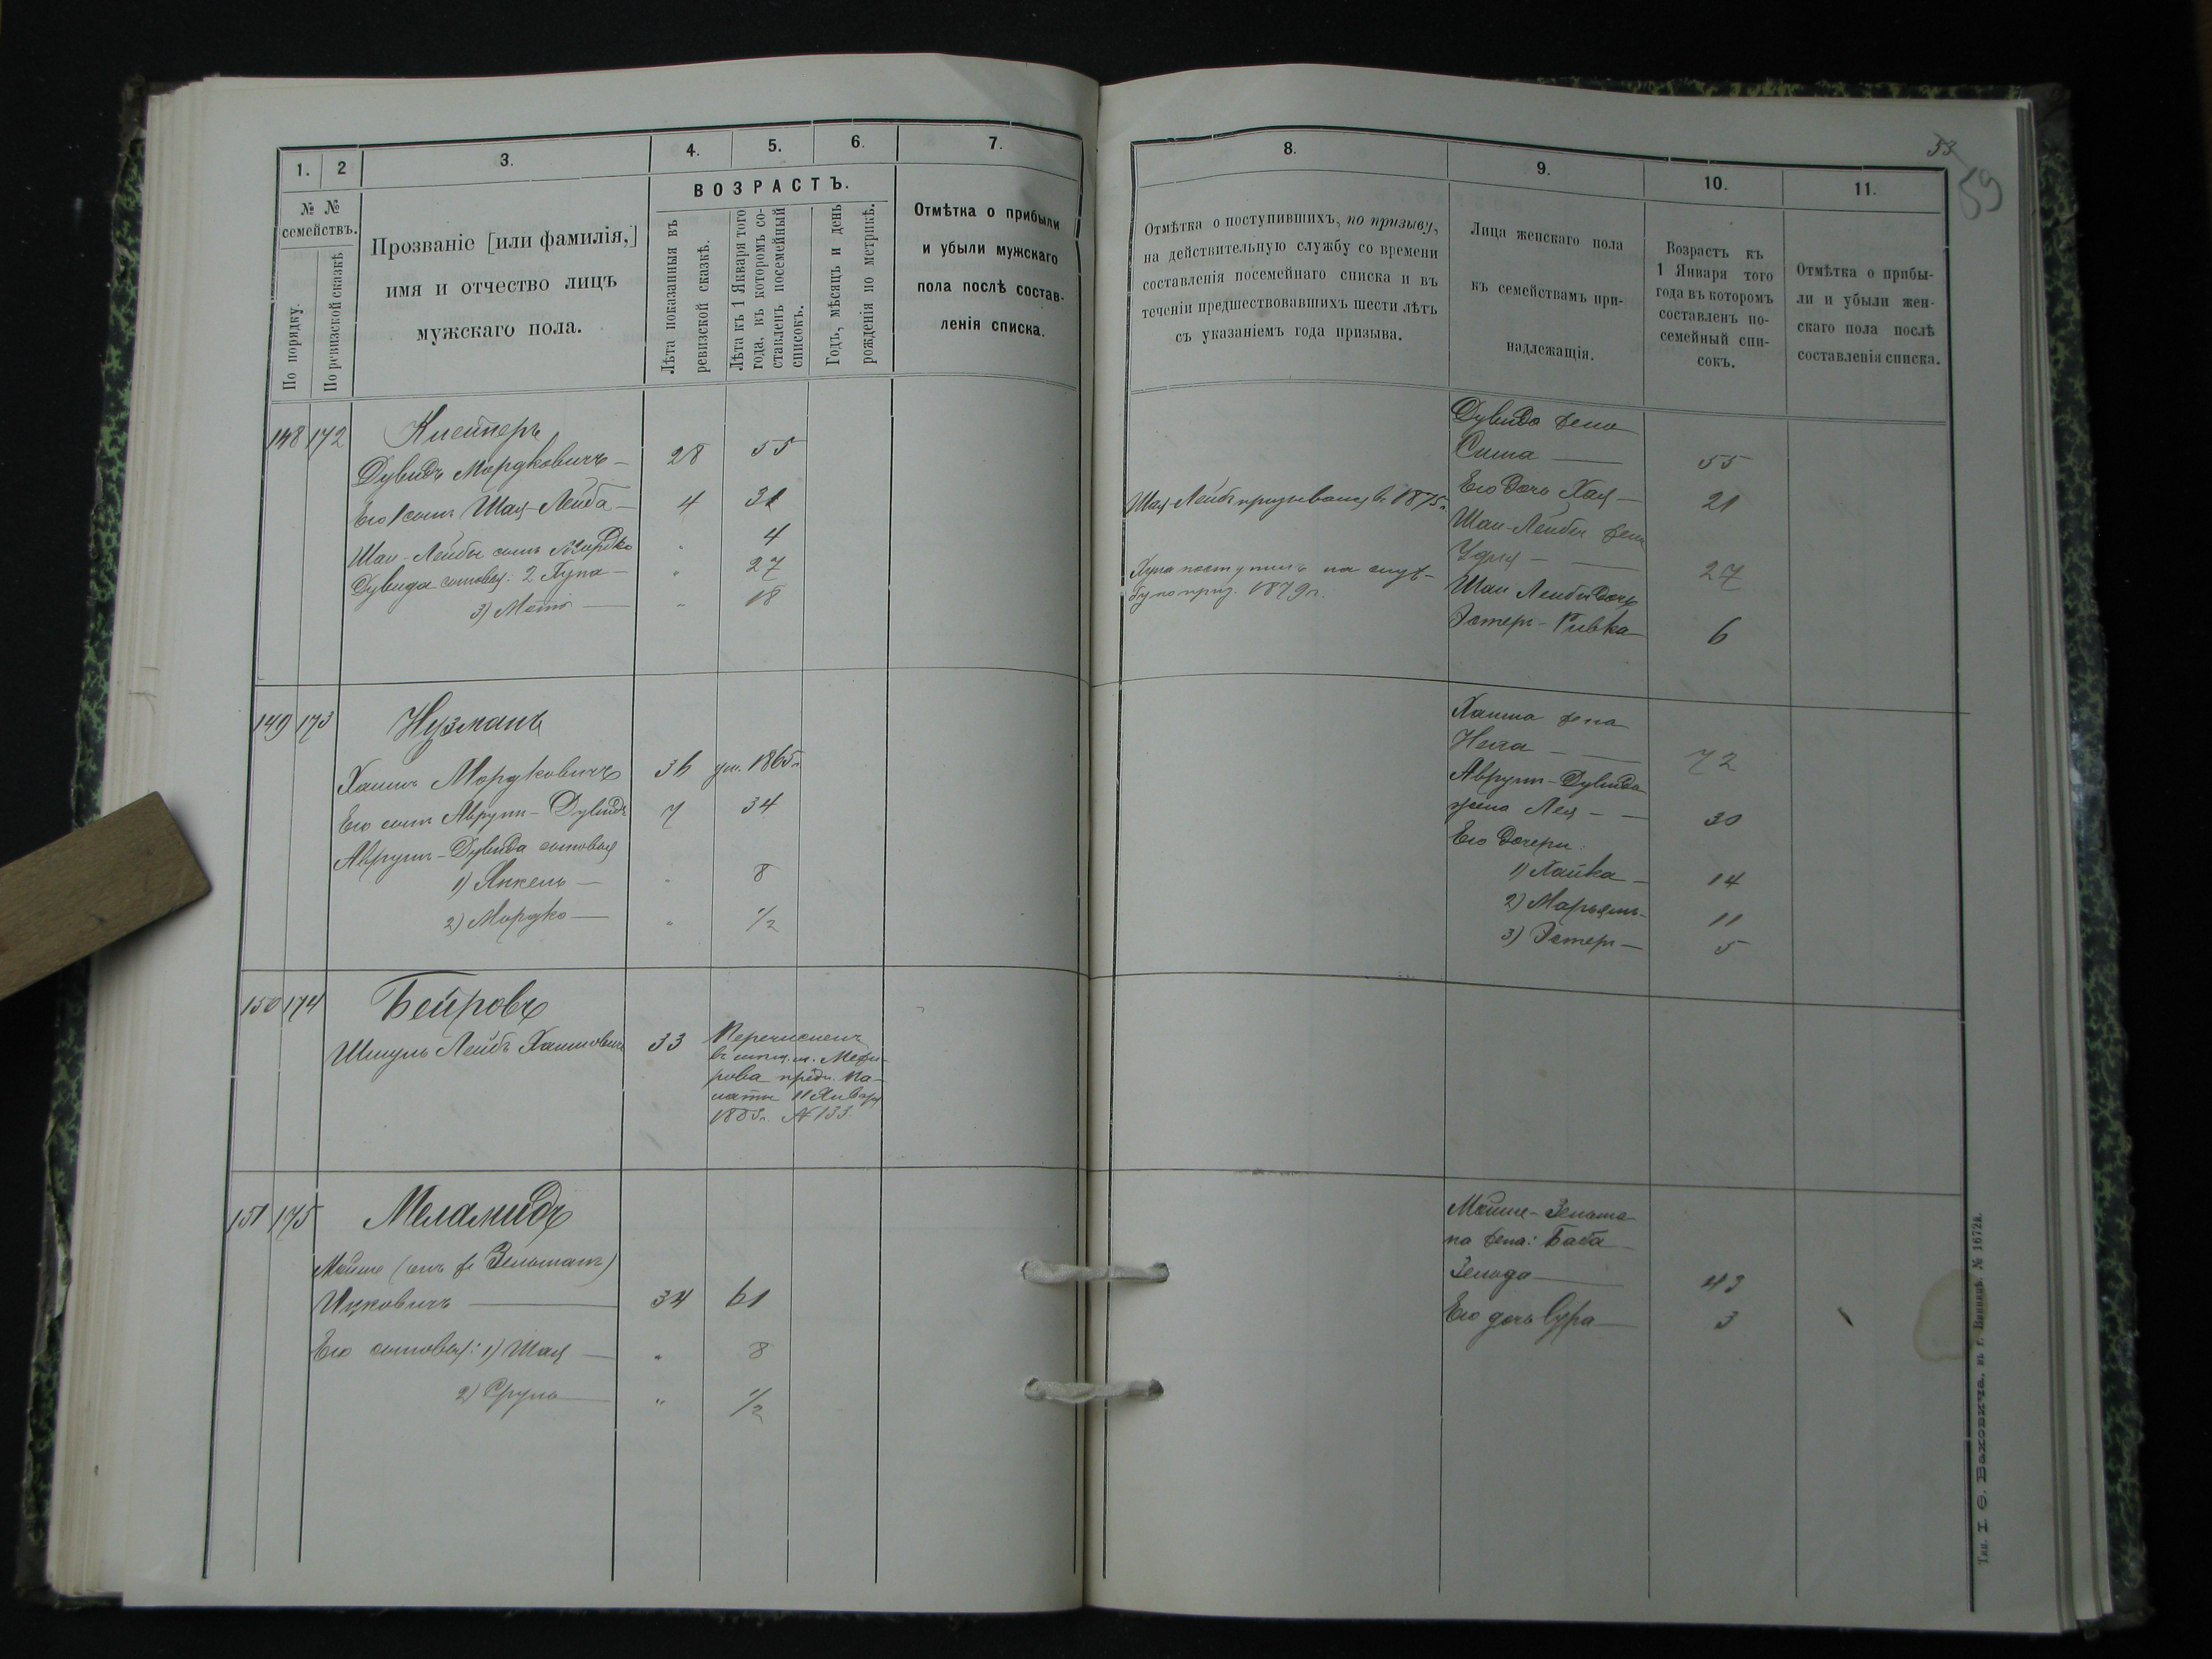 1.
2
3.
4.
5.
6.
7.
№ №
семействъ.
По порядку.
По ревизской сказкѣ
Прозваніе [или фамилія,]
имя и отчество лицъ
мужскаго пола.
ВОЗРАСТЪ.
Лѣта показанныя въ
ревизской сказкѣ.
Лѣта къ 1 Января того
года, въ которомъ со-
ставленъ посемейный
списокъ.
Годъ, мѣсяцъ и день
рожденія по метрикѣ.
Отмѣтка о прибыли
и убыли мужскаго
пола послѣ состав-
ленія списка.
148 172
Дувидъ Мордковичъ — 28 55
Его 1 сынъ Шая-Лейба — 4 31
Шаи-Лейбы сынъ Мордко " 4
Дувида сыновья: 2 Хуна — " 27
3) — " 18
149 173 Нузманъ
Хаимъ Мордковичъ 36 ум. 1865 г.
Его сынъ Аврумъ-Дувидъ 7 34
Аврумъ-Дувида сыновья
1) Янкель — " 8
2) Мордко — " 1/2
150 174 Бейровъ
Шмуль Лейбъ Хаимовичъ 33 Перечисленъ
рова пред. Па-
латы 11 Января
№ 133.
151 175 Меламидъ
Мойше (онъ же Зельманъ)
Ицковичъ — 34 61
Его сыновья: 1) Шая — " 8
2) Сруль — " 1/2
53
59
8.
9.
10.
11.
Отмѣтка о поступившихъ, по призыву,
на дѣйствительную службу со времени
составленія посемейнаго списка и въ
теченіи предшествовавшихъ шести лѣтъ
съ указаніемъ года призыва.
Лица женскаго пола
къ семействамъ при-
надлежащія.
Возрастъ къ
1 Января того
года въ которомъ
составленъ по-
семейный спи-
сокъ.
Отмѣтка о прибы-
ли и убыли жен-
скаго пола послѣ
составленія списка.
Дувида жена
Сима — 55
Шая-Лейба призывался въ 1875 г. Его дочь Хая — 21
Шаи-Лейбы жена
Хуна поступилъ на служ- — 27
бу по приз. 1879 г. Шаи Лейбы дочь
Эстеръ-Ривка — 6
Хаима жена
— 72
Аврумъ-Дувида
жена Лея — 30
Его дочери:
1) Хайка — 14
2) Марьямъ — 11
3) Эстеръ — 5
Мойше-Зельма-
на жена: Баба
Зельда — 43
Его дочь Сура — 3
Тип. І. Ѳ. Баховича, въ г. Винницѣ. № 1672в.